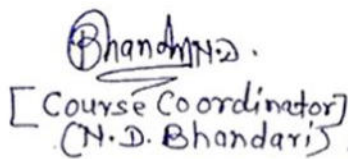 Bhandari N.D.
[Course Coordinator]
(N.D. Bhandari)